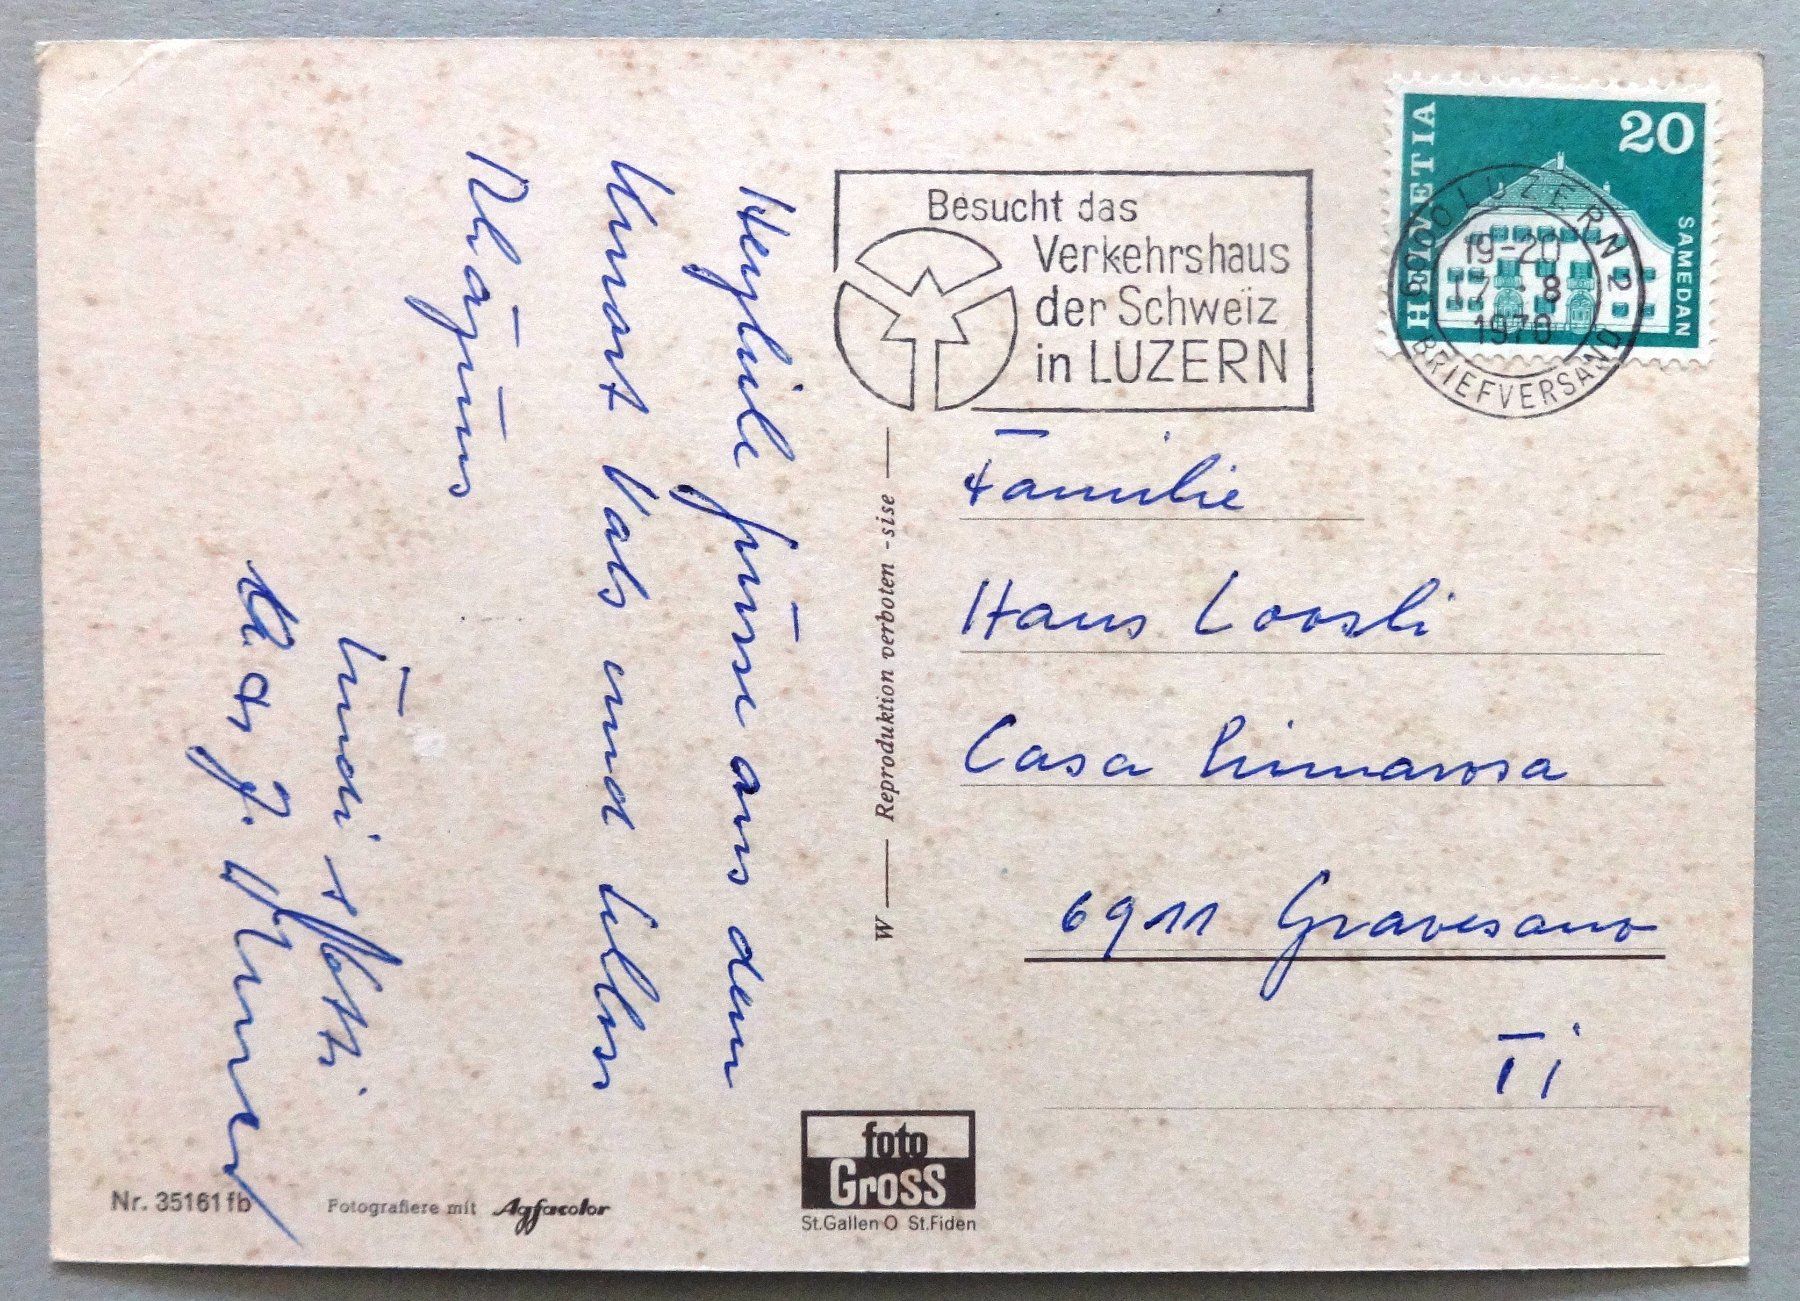 Herzliche Grüsse aus dem
Kurort Vals und liebes
Trudi + Hotti
u. J.
Besucht das
Verkehrshaus
der Schweiz
in LUZERN
HELVETIA
20
SAMEDAN
6000 LUZERN 2
19-20
17.-8
1970
BRIEFVERSAND
Familie
Hans Loosli
Casa Primarosa
6911 Gravesano
Ti
W — Reproduktion verboten - sise —
foto
GROSS
St.Gallen O St.Fiden
Nr. 35161 fb
Fotografiere mit Agfacolor